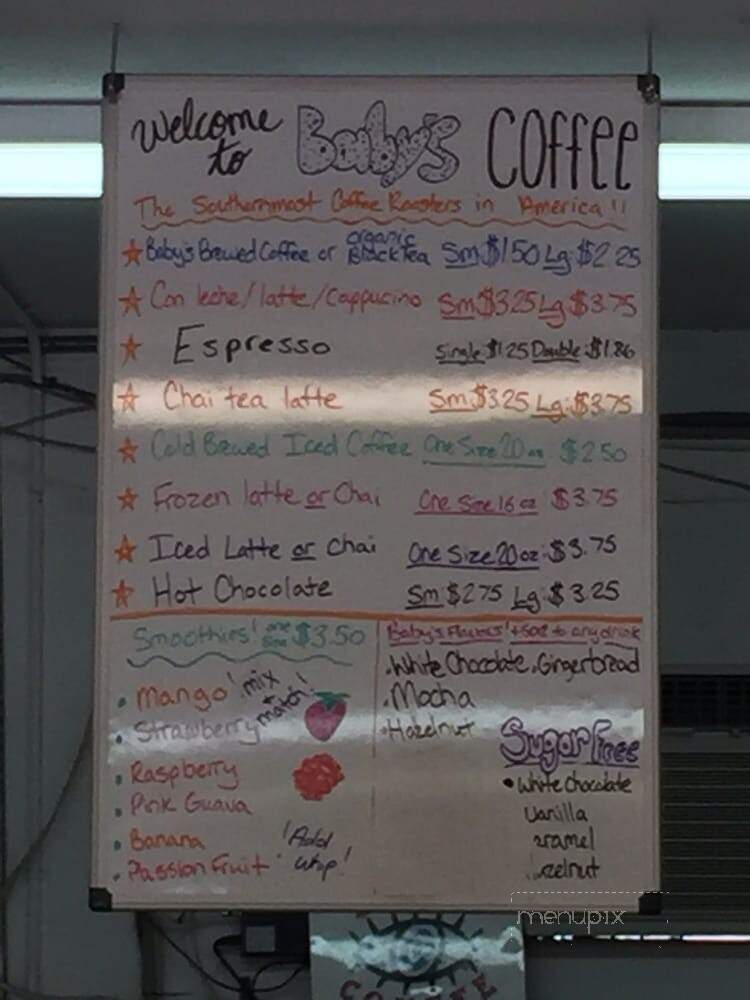 Welcome to Baby's COFFEE
The Southernmost Coffee Roasters in America!!
Baby's Brewed Coffee or organic Black Tea Sm $1.50 Lg $2.25
Con leche/latte/Cappucino Sm $3.25 Lg $3.75
Espresso Single $1.25 Double $1.86
Chai tea latte Sm $3.25 Lg $3.75
Cold Brewed Iced Coffee One Size 20 oz $2.50
Frozen latte or Chai One Size 16 oz $3.75
Iced Latte or Chai One Size 20 oz $3.75
Hot Chocolate Sm $2.75 Lg $3.25
Smoothies! one size $3.50
Mango
Strawberry
mix + match!
Raspberry
Pink Guava
Banana
Passion Fruit
!Add whip!
Baby's Flavors! +50¢ to any drink
White Chocolate Gingerbread
Mocha
Hazelnut
Sugar Free
White Chocolate
Vanilla
aramel
zelnut
menupix
COFFEE